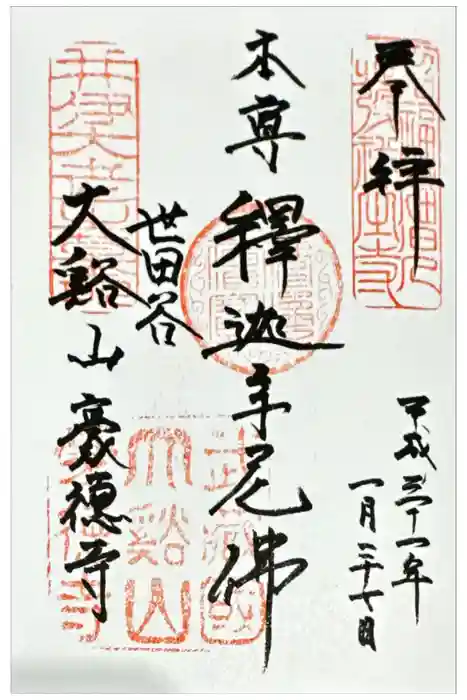 奉拝
平成三十一年
一月二十七日
本尊 釋迦牟尼佛
世田谷
大谿山豪徳寺
武藏國
大谿山
豪徳寺